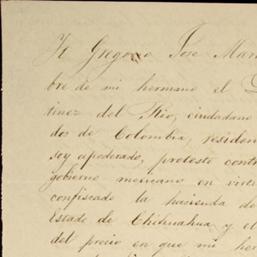 Yo Gregorio José Mar
bre de mi hermano el D
tinez del Rio, ciudadano
dos de Colombia, residen
soy apoderado, protesto contr
gobierno mexicano en virtu
confiscado la hacienda de
Estado de Chihuahua y el
del precio en que mi her